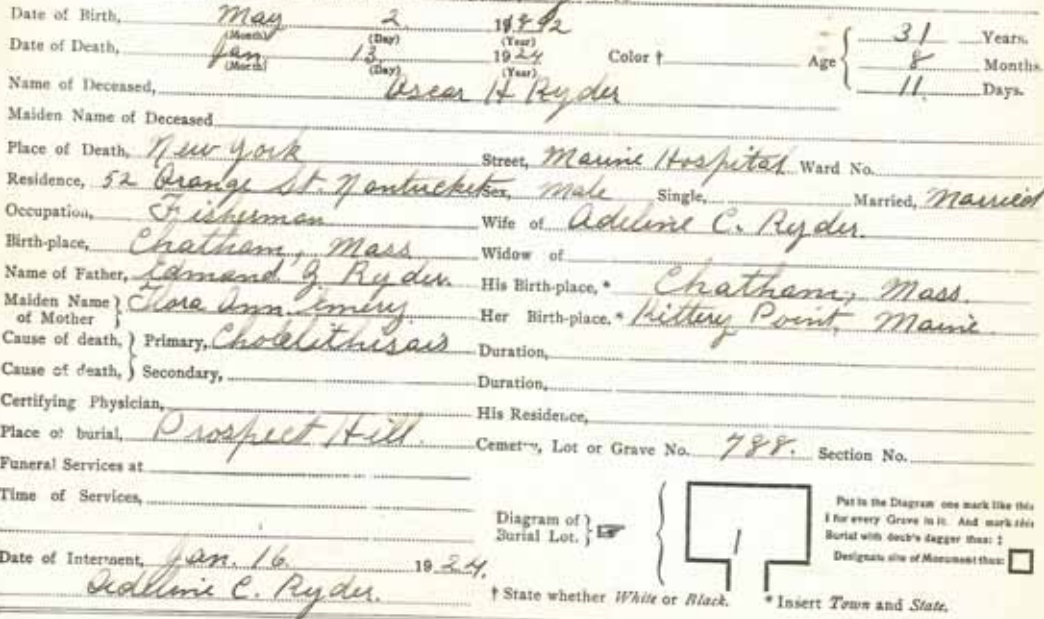 Date of Birth, May 2 1892
(Month) (Day) (Year)
Date of Death, Jan 13 1924 Color † Age { 31 Years.
(Month) (Day) (Year) 8 Months
Name of Deceased, Oscar H Ryder 11. Days.
Maiden Name of Deceased
Place of Death, New York Street, Marine Hospital Ward No.
Residence, 52 Orange St. Nantucket Sex, Male Single, Married, Married
Occupation, Fisherman Wife of Adeline C. Ryder.
Birth-place, Chatham, Mass Widow of
Name of Father, Edmand Z Ryder. His Birth-place,* Chatham, Mass.
Maiden Name of Mother } Flora Ann Emery. Her Birth-place,* Kittery Point, Maine
Cause of death, } Primary, Cholelithisais Duration,
Cause of death, } Secondary, Duration,
Certifying Physician, His Residence,
Place of burial, Prospect Hill. Cemet'y, Lot or Grave No. 788. Section No.
Funeral Services at
Time of Services,
Diagram of Burial Lot. }
Put in the Diagram one mark like this
I for every Grave in it. And mark this
Burial with doub'e dagger thus: ‡
Designate site of Monument thus:
Date of Interment, Jan. 16 1924.
Adeline C. Ryder.
† State whether White or Black. * Insert Town and State.